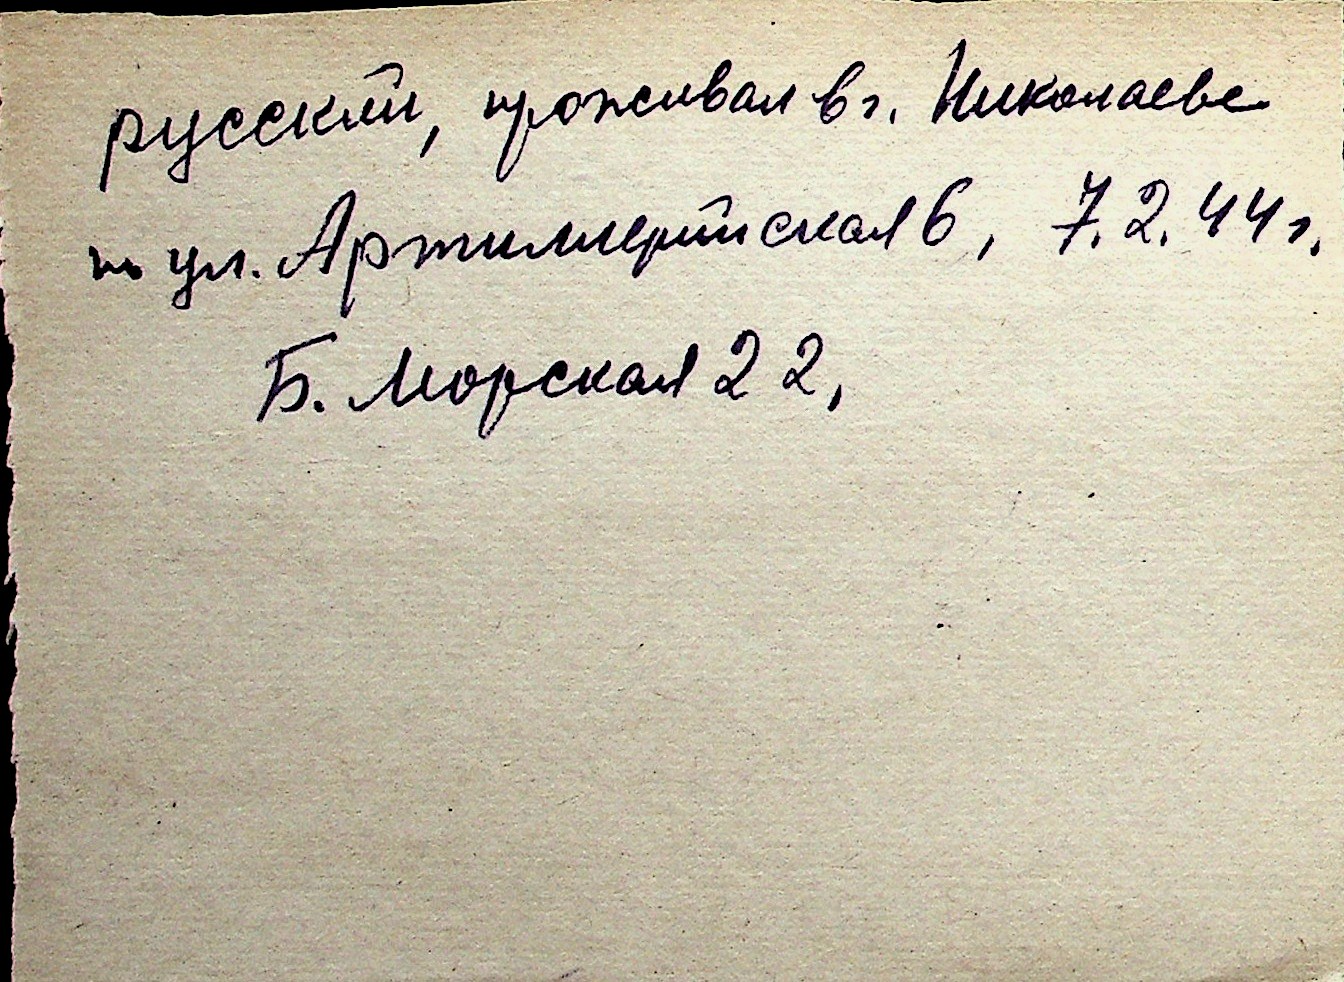 русский, проживал в г. Николаеве
по ул. Артиллерийская 6, 7.2.44 г.
Б. Морская 22,